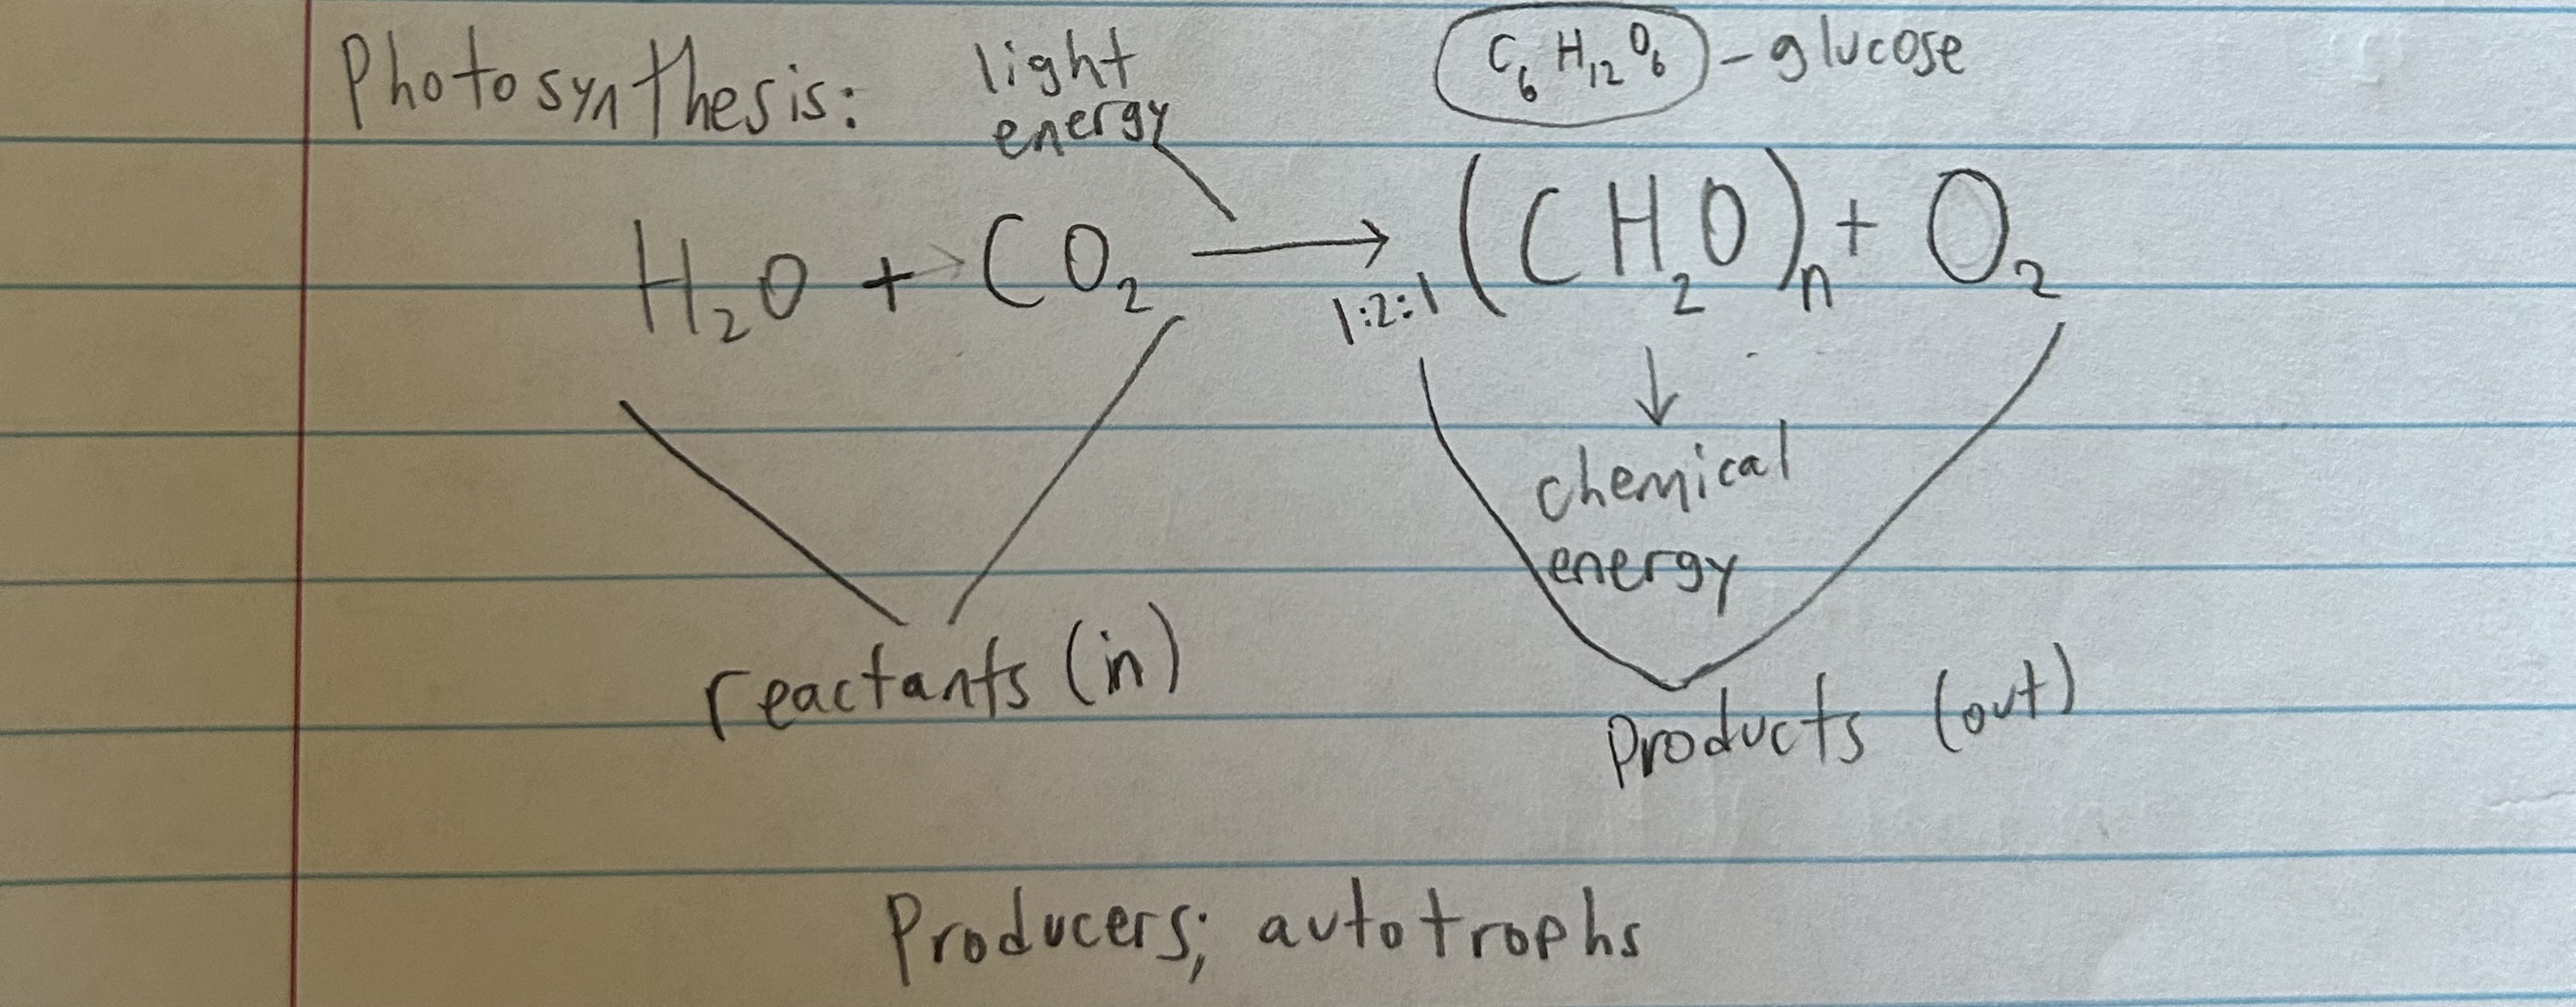 Photosynthesis:
light
energy
C₆H₁₂O₆ - glucose
H₂O + CO₂ → 1:2:1 (CH₂O)ₙ + O₂
↓
chemical
energy
reactants (in)
Products (out)
Producers; autotrophs